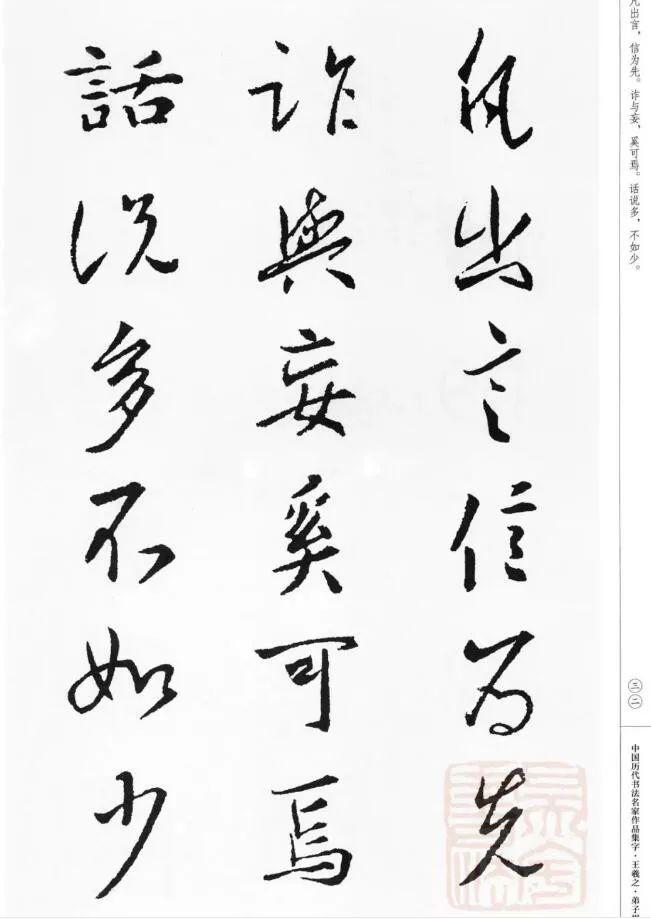 凡出言信为先
詐與妄奚可焉
話说多不如少
凡出言，信为先。诈与妄，奚可焉。话说多，不如少。
三二
中国历代书法名家作品集字·王羲之·弟子